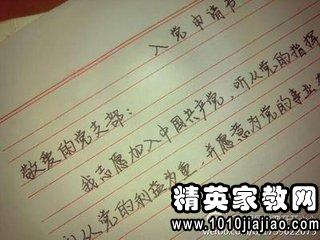 入党申请书
敬爱的党支部：
我志愿加入中国共产党，听从党的指挥
从党的利益为重，并愿意为党的事业
精英家教网
www.1010jiajiao.com